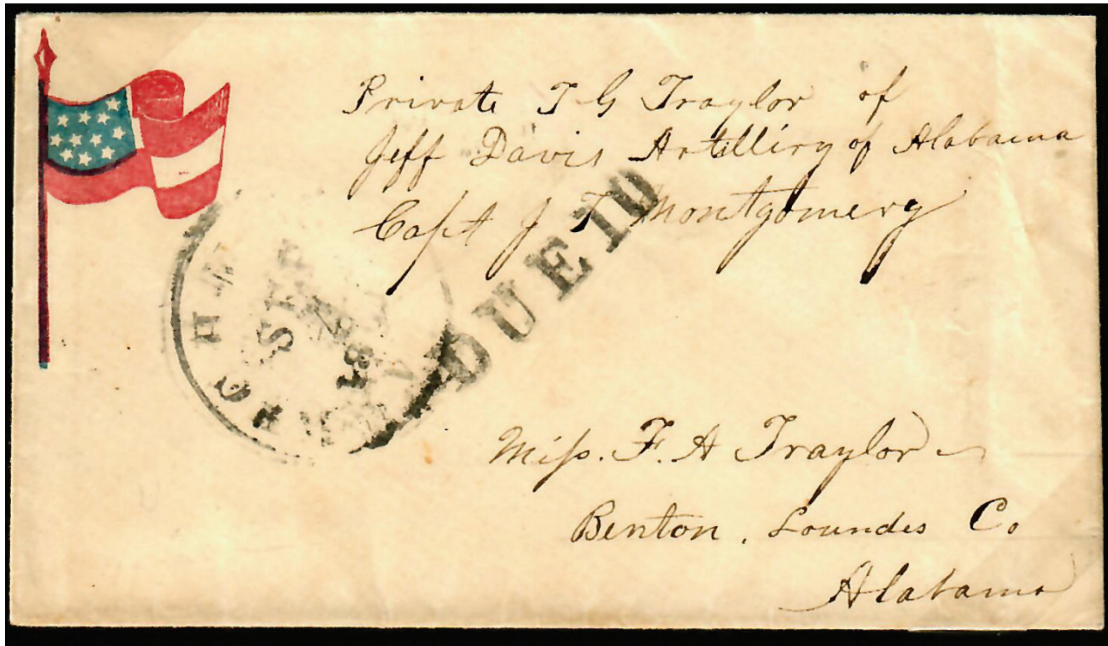 Private T G Traylor of
Jeff Davis Artilliry of Alabama
Capt J T Montgomery
DUE 10
SEP
Miss. F. A Traylor
Benton, Loundes Co
Alabama